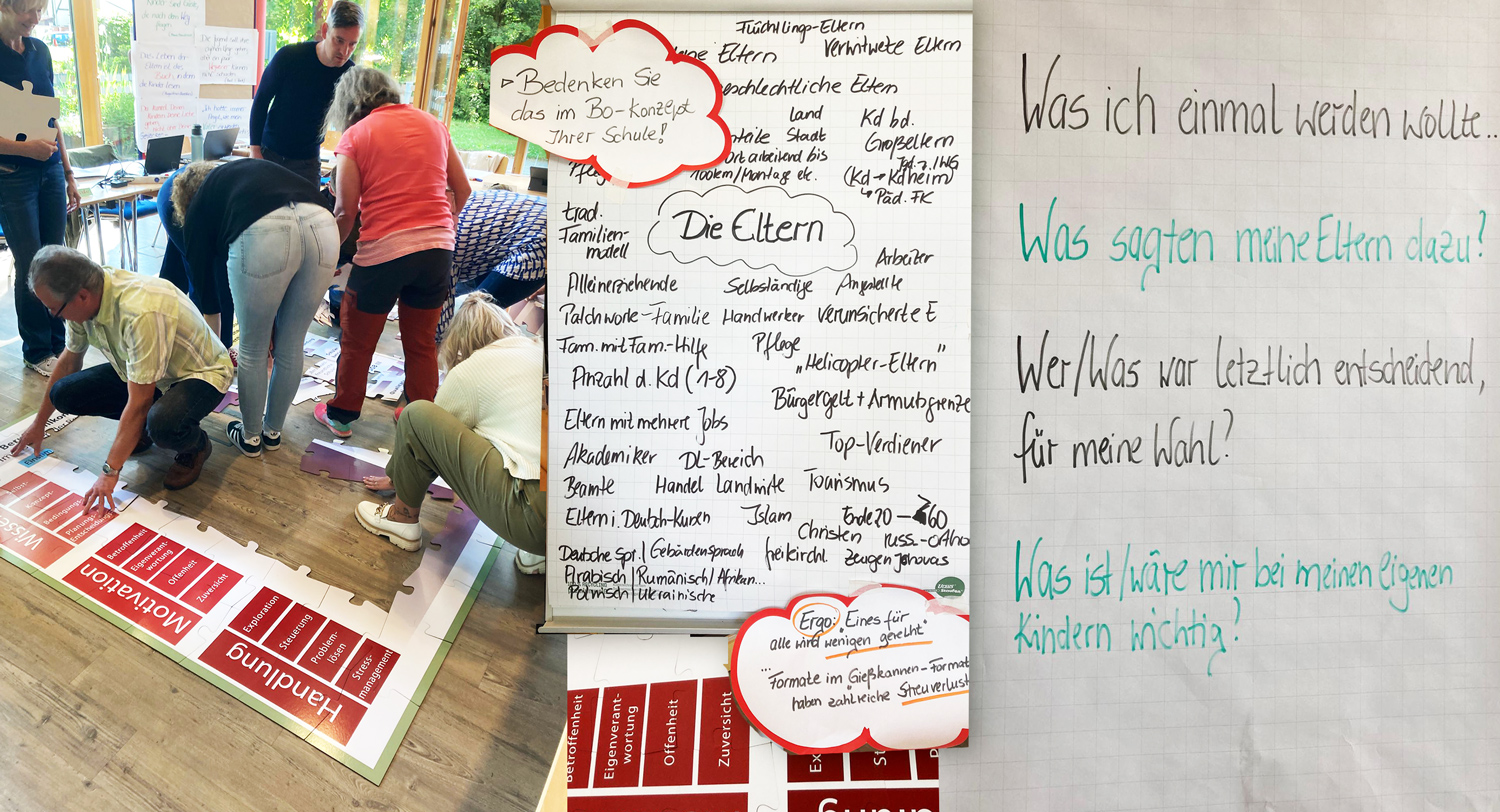 Wissen
Konzept-
Bedingungs-
Planungs-
Entscheidungs-
Motivation
Betroffenheit
Eigenverant-
wortung
Offenheit
Zuversicht
Handlung
Exploration
Steuerung
Problem-
lösen
Stress-
management
▷ Bedenken Sie
das im Bo-Konzept
Ihrer Schule!
Flüchtlings-Eltern
Eltern
Verwitwete Eltern
eschlechtliche Eltern
Land
Stadt
Kd bd.
Großeltern
ort arbeitend bis
100km/Montage etc.
(Kd → Kdheim)
↳ Päd. FK
trad.
Familien-
modell
Die Eltern
Arbeiter
Alleinerziehende
Selbständige
Angestellte
Patchwork-Familie
Handwerker
verunsicherte E
Fam. mit Fam.-Hilfe
Pflege
„Helicopter-Eltern"
Anzahl d. Kd (1-8)
Bürgergeld + Armutsgrenze
Eltern mit mehrere Jobs
Top-Verdiener
Akademiker
DL-Bereich
Beamte
Handel
Landwirte
Tourismus
Eltern i. Deutsch-Kursen
Islam
Ende 20 – 60
Christen
russ.-ortho
Deutsche Spr. | Gebärdensprach
freikirchl.
Zeugen Jehovas
Arabisch | Rumänisch / Afrikan...
Polnisch | Ukrainische
Ergo: „Eines für
alle wird wenigen gerecht"
... Formate im Gießkannen-Format
haben zahlreiche Streuverlust
Betroffenheit
Eigenverant-
wortung
Offenheit
Zuversicht
Was ich einmal werden wollte..
Was sagten meine Eltern dazu?
Wer/Was war letztlich entscheidend,
für meine Wahl?
Was ist/wäre mir bei meinen eigenen
Kindern wichtig?